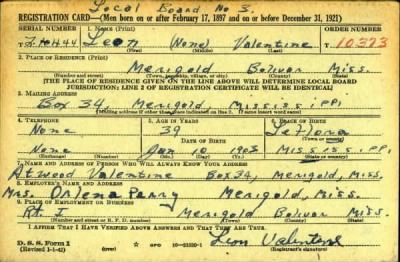 Local Board No 3.
REGISTRATION CARD—(Men born on or after February 17, 1897 and on or before December 31, 1921)
SERIAL NUMBER 1. NAME (Print) ORDER NUMBER
Leon (None) Valentine T 10,373
(First) (Middle) (Last)
2. PLACE OF RESIDENCE (Print)
Merigold Bolivar Miss.
(Number and street) (Town, township, village, or city) (County) (State)
[THE PLACE OF RESIDENCE GIVEN ON THE LINE ABOVE WILL DETERMINE LOCAL BOARD
JURISDICTION; LINE 2 OF REGISTRATION CERTIFICATE WILL BE IDENTICAL]
3. MAILING ADDRESS
Box 34, Merigold Mississippi
[Mailing address if other than place indicated on line 2. If same insert word same]
4. TELEPHONE 5. AGE IN YEARS 6. PLACE OF BIRTH
None 39 Leflora
DATE OF BIRTH (Town or county)
None Jan 10 1903 Mississippi
(Exchange) (Number) (Mo.) (Day) (Yr.) (State or country)
7. NAME AND ADDRESS OF PERSON WHO WILL ALWAYS KNOW YOUR ADDRESS
Atwood Valentine Box 34, Merigold, Miss.
8. EMPLOYER'S NAME AND ADDRESS
Mrs. Orlena Parry Merigold, Miss.
9. PLACE OF EMPLOYMENT OR BUSINESS
Rt. I Merigold Bolivar Miss.
(Number and street or R. F. D. number) (Town) (County) (State)
I AFFIRM THAT I HAVE VERIFIED ABOVE ANSWERS AND THAT THEY ARE TRUE.
D. S. S. Form 1
(Revised 1-1-42) GPO 16—21630-1 Leon Valentine